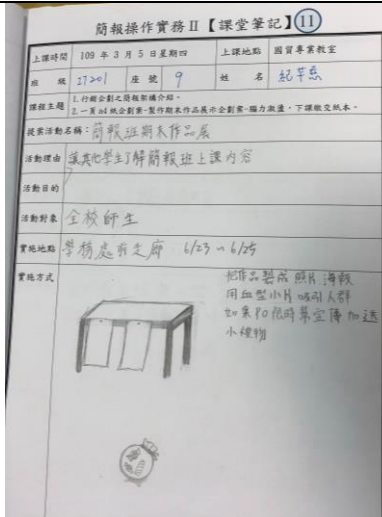 簡報操作實務Ⅱ【課堂筆記】11
上課時間 109 年 3 月 5 日星期四 上課地點 國貿專業教室
班級 27201 座號 9 姓名 紀芊慈
課程主題 1.行銷企劃之簡報架構介紹。
2.一頁a4紙企劃案-製作期末作品展示企劃案-腦力激盪,下課繳交紙本。
提案活動名稱:簡報班期末作品展
活動理由 讓其他學生了解簡報班上課內容
活動目的
活動對象 全校師生
實施地點 學務處前走廊 6/23~6/25
實施方式 把作品製成照片海報
用血型小片吸引人群
如果
小禮物